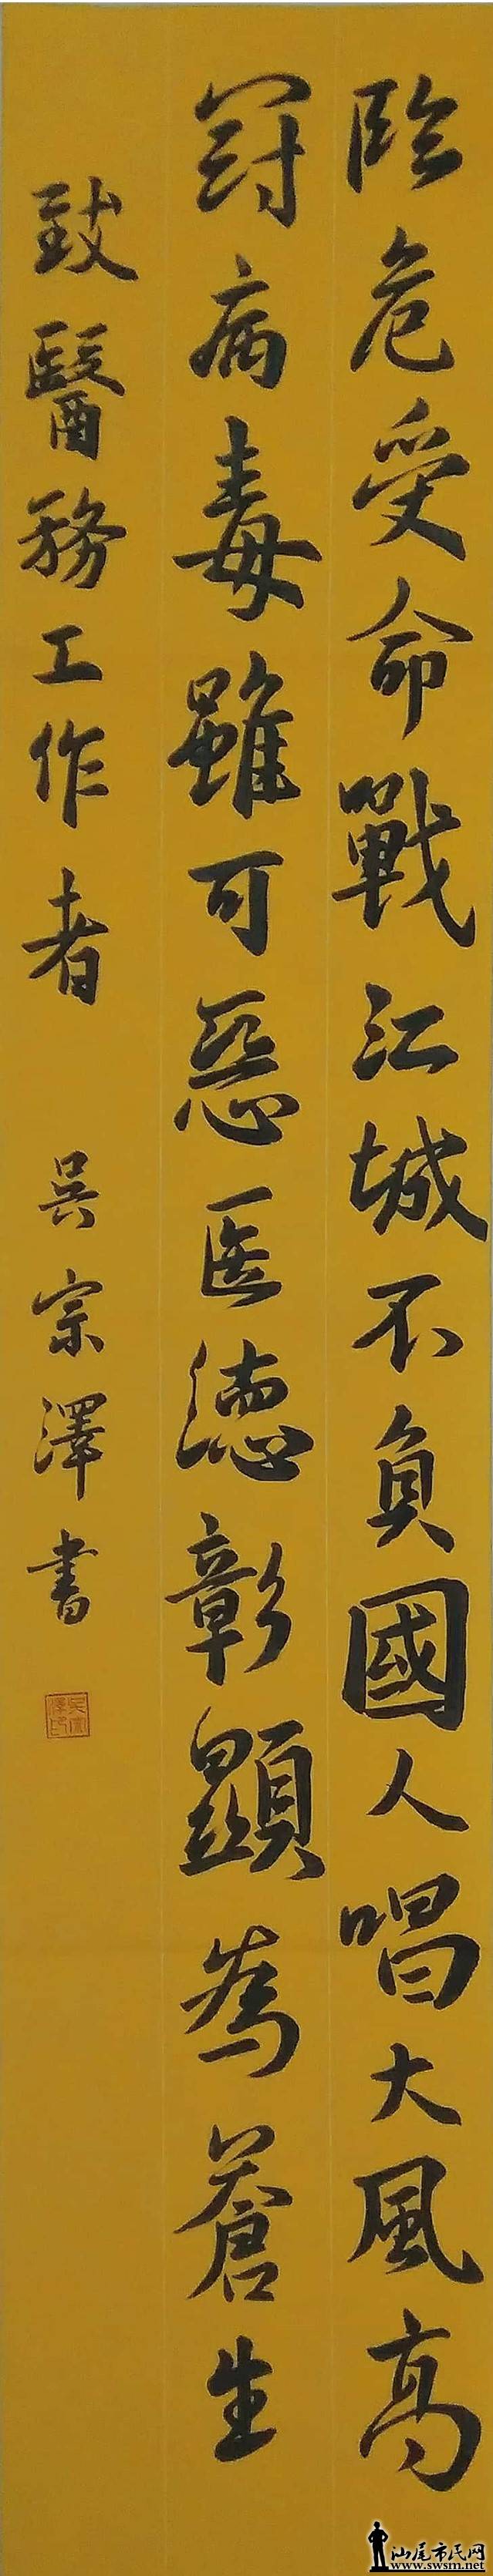 臨危受命戰江城不負國人唱大風高
冠病毒雖可惡医德彰顯為蒼生
致醫務工作者 吴宗澤書
吴宗澤印
汕尾市民网
www.swsm.net